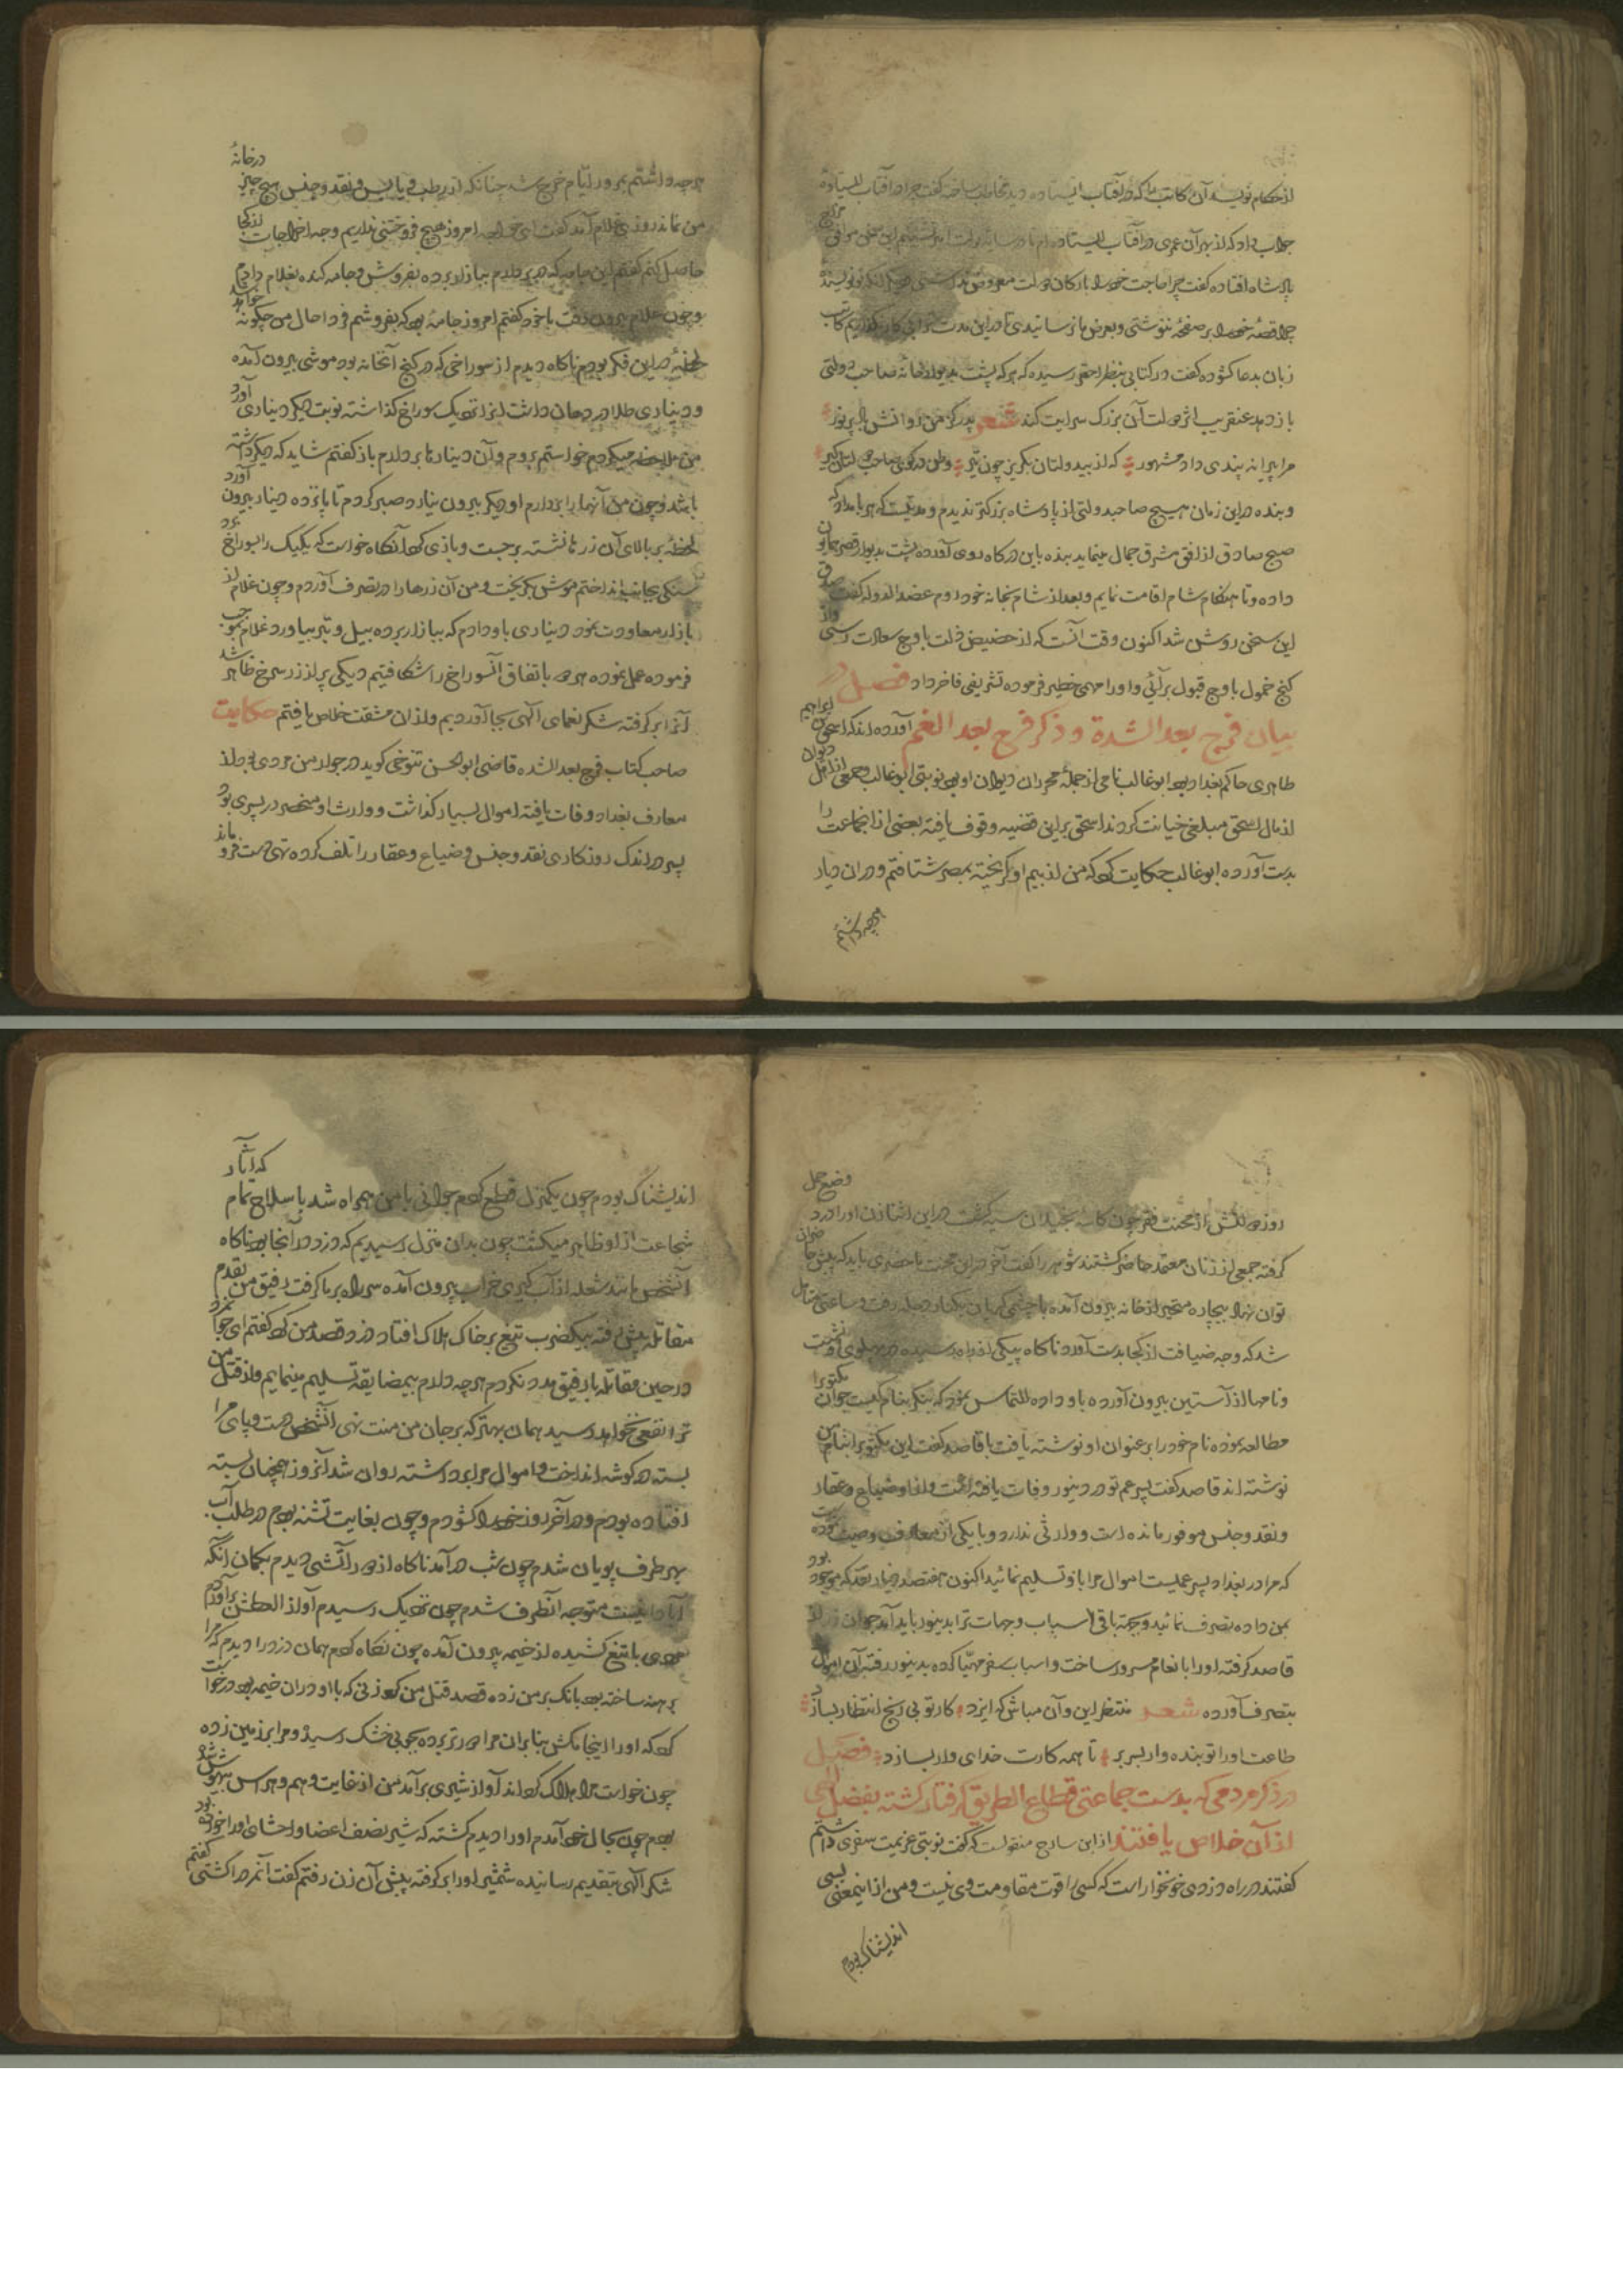 از حکام نویسد آن کاتب را که در آفتاب ایستاده دید مخاطب ساخته گفت چرا در آفتاب ایستادهٔ
جواب داد که از بهر آن عمری در آفتاب ایستاده‌ام تا در سایه دولت این سخن موافق مزاج
پادشاه افتاده گفت چرا حاجت خود را بارکان دولت معروض
چرا قصهٔ خود را بر صفحهٔ ننوشتی و بعرض ما نرسانیدی تا در این مدت کاتب
زبان بدعا کشوده گفت در کتابی بنظر احقر رسیده که هر که پشت بدیوار خانه صاحب دولتی
باز دهد عنقریب اثر دولت آن بزرگ سرایت کند شعر پدر کز من روانش باد پر نور
مرا پیرانه پندی داد مشهور که از بیدولتان بگریز چون تیر وطن در کوی صاحب دولتان گیر
و بنده در این زمان هیچ صاحبدولتی از پادشاه بزرکتر ندیدم و مدتیست که هر بامداد که
صبح صادق از افق مشرق جمال مینماید بنده باین درکاه روی آورده پشت بدیوار قصر همایون
داده و تا هنکام شام اقامت نمایم و بعد از شام بخانه خود روم عضد الدوله گفت صدق
این سخن روشن شد اکنون وقت آنست که از حضیض ذلت باوج سعادت رسی واز
کنج خمول باوج قبول برآئی و او را مهمی خطیر فرموده تشریفی فاخر داد فصل در
بیان فرج بعد الشدة و ذکر فرح بعد الغم آورده‌اند که اسحق بن ابراهیم
طاهری حاکم بغداد بود ابو غالب نامی از جملهٔ محرران دیوان او بود نوبتی ابو غالب و جمعی از اهل دیوان
از مال اسحق مبلغی خیانت کردند اسحق بر این قضیه وقوف یافته بعضی از انجماعت را
بدست آورده ابو غالب حکایت کرد که من از بیم او گریخته بمصر شتافتم و در ان دیار
هرچه داشتم
هرچه داشتم بمرور ایام خرج شد چنانکه از رطب و یابس و نقد و جنس هیچ چیز در خانهٔ
من نماند روزی غلام آمد گفت ای خواجه امروز هیچ فروختنی نداریم وجه اخراجات از کجا
حاصل کنم گفتم این جامه که در بر دارم ببازار برده بفروش و جامه کنده بغلام دادم
و چون غلام بیرون رفت با خود گفتم امروز جامه بود که بفروشم فردا حال من چگونه خواهد شد
لحظهٔ در این فکر بودم ناکاه دیدم از سوراخی که در کنج آنخانه بود موشی بیرون آمده
و دیناری طلا در دهان داشت انرا نزدیک سوراخ گذاشته نوبت دیکر دیناری آورد
من ملاحظه میکردم خواستم بروم و آن دینارها بر دارم باز گفتم شاید که دیکر داشته
باشد و چون من آنها را بردارم او دیکر بیرون نیارد صبر کردم تا پانزده دینار بیرون آورد
لحظهٔ بر بالای آن زرها نشسته برجست و بازی کرد آنکاه خواست که یکیک را بسوراخ برد
سنکی بجانبش انداختم موش بگریخت و من آن زرها را در تصرف آوردم و چون غلام از
بازار معاودت نمود دیناری باو دادم که ببازار برده بیل و تبر بیاورد غلام بموجب
فرموده عمل نموده هر دو باتفاق آنسوراخ را شکافتیم دیکی پر از زر سرخ ظاهر شد
آنرا بر گرفته شکر نعمای آلهی بجا آوردیم و از ان مشقت خلاص یافتم حکایت
صاحب کتاب فرج بعد الشده قاضی ابو الحسن تنوخی کوید در جوار من مردی بود از
معارف بغداد وفات یافته اموال بسیار گذاشت و وارث او منحصر در پسری بود
پسر در اندک روزکاری نقد و جنس و ضیاع و عقار را تلف کرده تهی دست فرو ماند
روزی زنش از محنت فقر چون کاسه بخیلان سیه کشت در این اثنا زن او را درد وضع حمل
گرفته جمعی از زنان معتمد حاضر کشتند شوهر را گفت آخر در این محنت ما حضری باید که پیش حاضران
توان نهاد بیچاره متحیر از خانه بیرون آمده با چشمی گریان بکنار دجله رفت و ساعتی متامل
شد که وجه ضیافت از کجا بدست آورد ناکاه پیکی از راه رسیده در پهلوی او نشست
و نامها از آستین بیرون آورده باو داده التماس نمود که بنکر بنام کیست جوان مکتوبرا
مطالعه نموده نام خود را بر عنوان او نوشته یافت با قاصد گفت این مکتوبرا بنام من
نوشته‌اند قاصد گفت پسر عم تو در دینور وفات یافته است و از او ضیاع و عقار
و نقد و جنس موفور مانده است و وارثی ندارد و با یکی از معارف وصیت کرده
که مرا در بغداد پسر عمیست اموال مرا باو تسلیم نمائید اکنون هفتصد دینار نقد که موجود بود
بمن داده تصرف نمائید و جهة باقی اسباب و جهات ترا بدینور باید آمد جوان زر از
قاصد گرفته او را بانعام مسرور ساخت و اسباب سفر مهیا کرده بدینور رفته آن اموال
بتصرف آورده شعر منتظر این و آن مباش که ایزد کار تو بی رنج انتظار بسازد
طاعت او را تو بنده وار بسر بر تا همه کارت خدای وار بسازد فصل
در ذکر مردمی که بدست جماعتی قطاع الطریق گرفتار کشته بفضل الهی
از آن خلاص یافتند از ابن سارج منقولست که گفت نوبتی عزیمت سفری داشتم
گفتند در راه دزدی خونخوار است که کسی را قوت مقاومت وی نیست و من از اینمعنی بسی
اندیشناک بودم
اندیشناک بودم چون یکمنزل قطع کردم جوانی با من همراه شد با سلاح تمام که آثار
شجاعت از او ظاهر میکشت چون بدان منزل رسیدیم که دزد در آنجا بود ناکاه
آنشخص مانند شعله از آب کیری خراب بیرون آمده سر راه بر ما گرفت رفیق من بقدم
مقاتله پیش رفته بیکضرب تیغ بر خاک هلاک افتاد دزد قصد من کرد گفتم ای جوانمرد
در حین مقاتله با رفیق مدد نکردم هرچه دارم بیمضایقه تسلیم مینمایم و از قتل من
ترا نفعی نخواهد رسید همان بهتر که بر جان من منت نهی آنشخص دست و پای مرا
بسته در کوشه انداخت و اموال مرا برداشته روان شد آنروز همچنان بسته
افتاده بودم و در آخر روز خود را کشودم و چون بغایت تشنه بودم در طلب آب
بهر طرف پویان شدم چون شب در آمد ناکاه از دور آتشی دیدم بکمان آنکه
آبادانیست متوجه آنطرف شدم چون نزدیک رسیدم آواز العطش برآوردم
مردی با تیغ کشیده از خیمه بیرون آمده چون نکاه کردم همان دزد را دیدم که مرا
برهنه ساخته بود بانک بر من زده قصد قتل من کرد زنی که با او در ان خیمه بود درخواست
کرد که او را اینجا مکش بنابران مرا دورتر برده بجوبی خشک رسید و مرا بر زمین زده
چون خواست مرا هلاک کرداند آواز شیری برآمد من از غایت وهم و هراس بیهوش شده
بودم چون بحال خود آمدم او را دیدم کشته که شیر نصف اعضا و احشای او را خورده بود
شکر آلهی بتقدیم رسانیده شمشیر او را بر گرفته پیش آن زن رفتم گفت آنمرد را کشتی گفتم